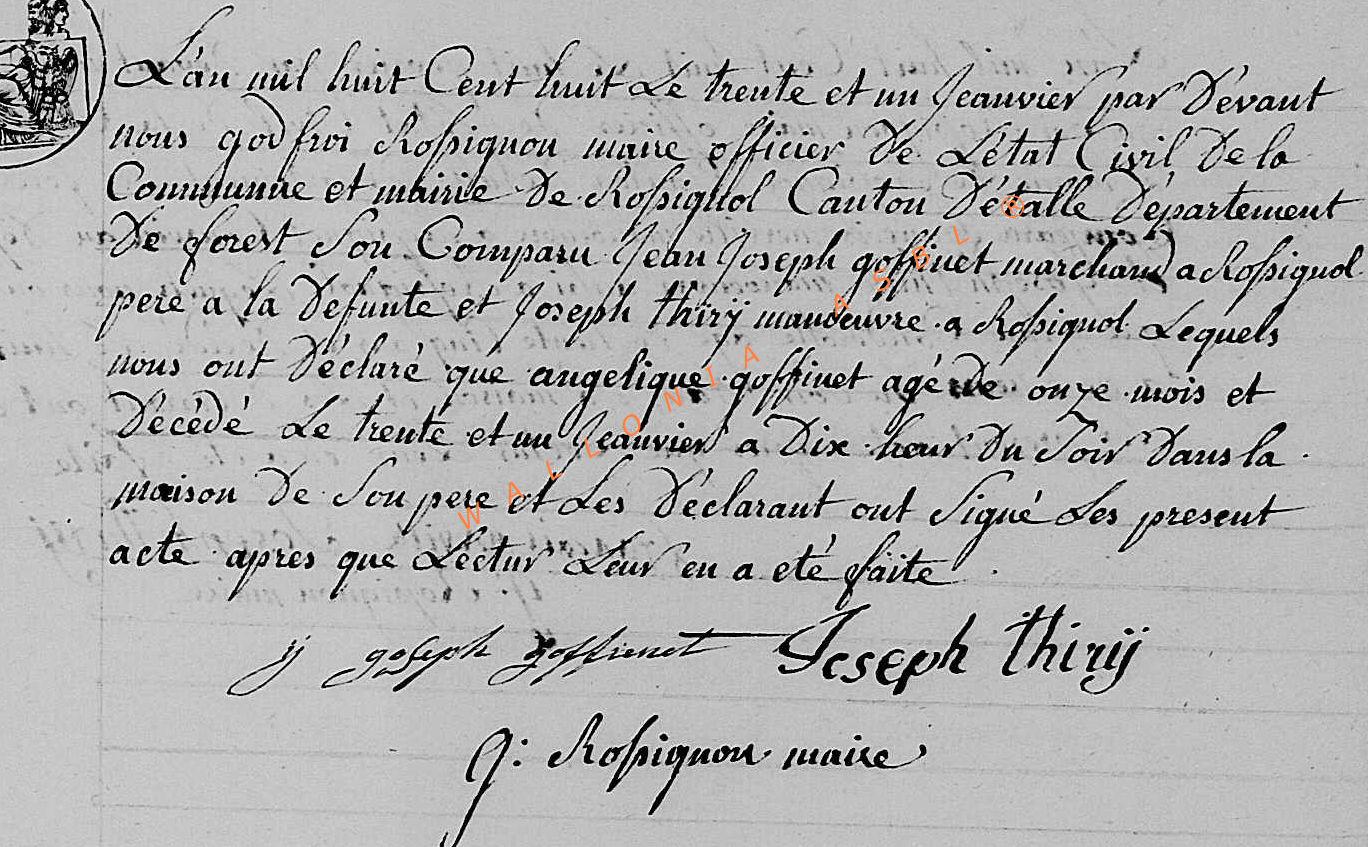 L'an mil huit Cent huit Le trente et un Jeanvier par Dévant
nous godfroi Rossignon maire officier De L'état Civil De la
Communne et mairie De Rossignol Canton D'étalle Département
De forest Son Comparu Jean Joseph goffinet marchand a Rossignol
pere a la Defunte et Joseph thirÿ manoeuvre a Rossignol Lequels
nous ont Déclaré que angelique goffinet agé De onze mois et
Décédé Le trente et un Jeanvier a Dix heur Du Soir Dans la
maison De Son pere et Les Déclarant ont Signé Les present
acte apres que Lectur Leur en a eté faite
j joseph goffienet Joseph thirij
g: Rossignon maire
WALLONIA ASBL ®